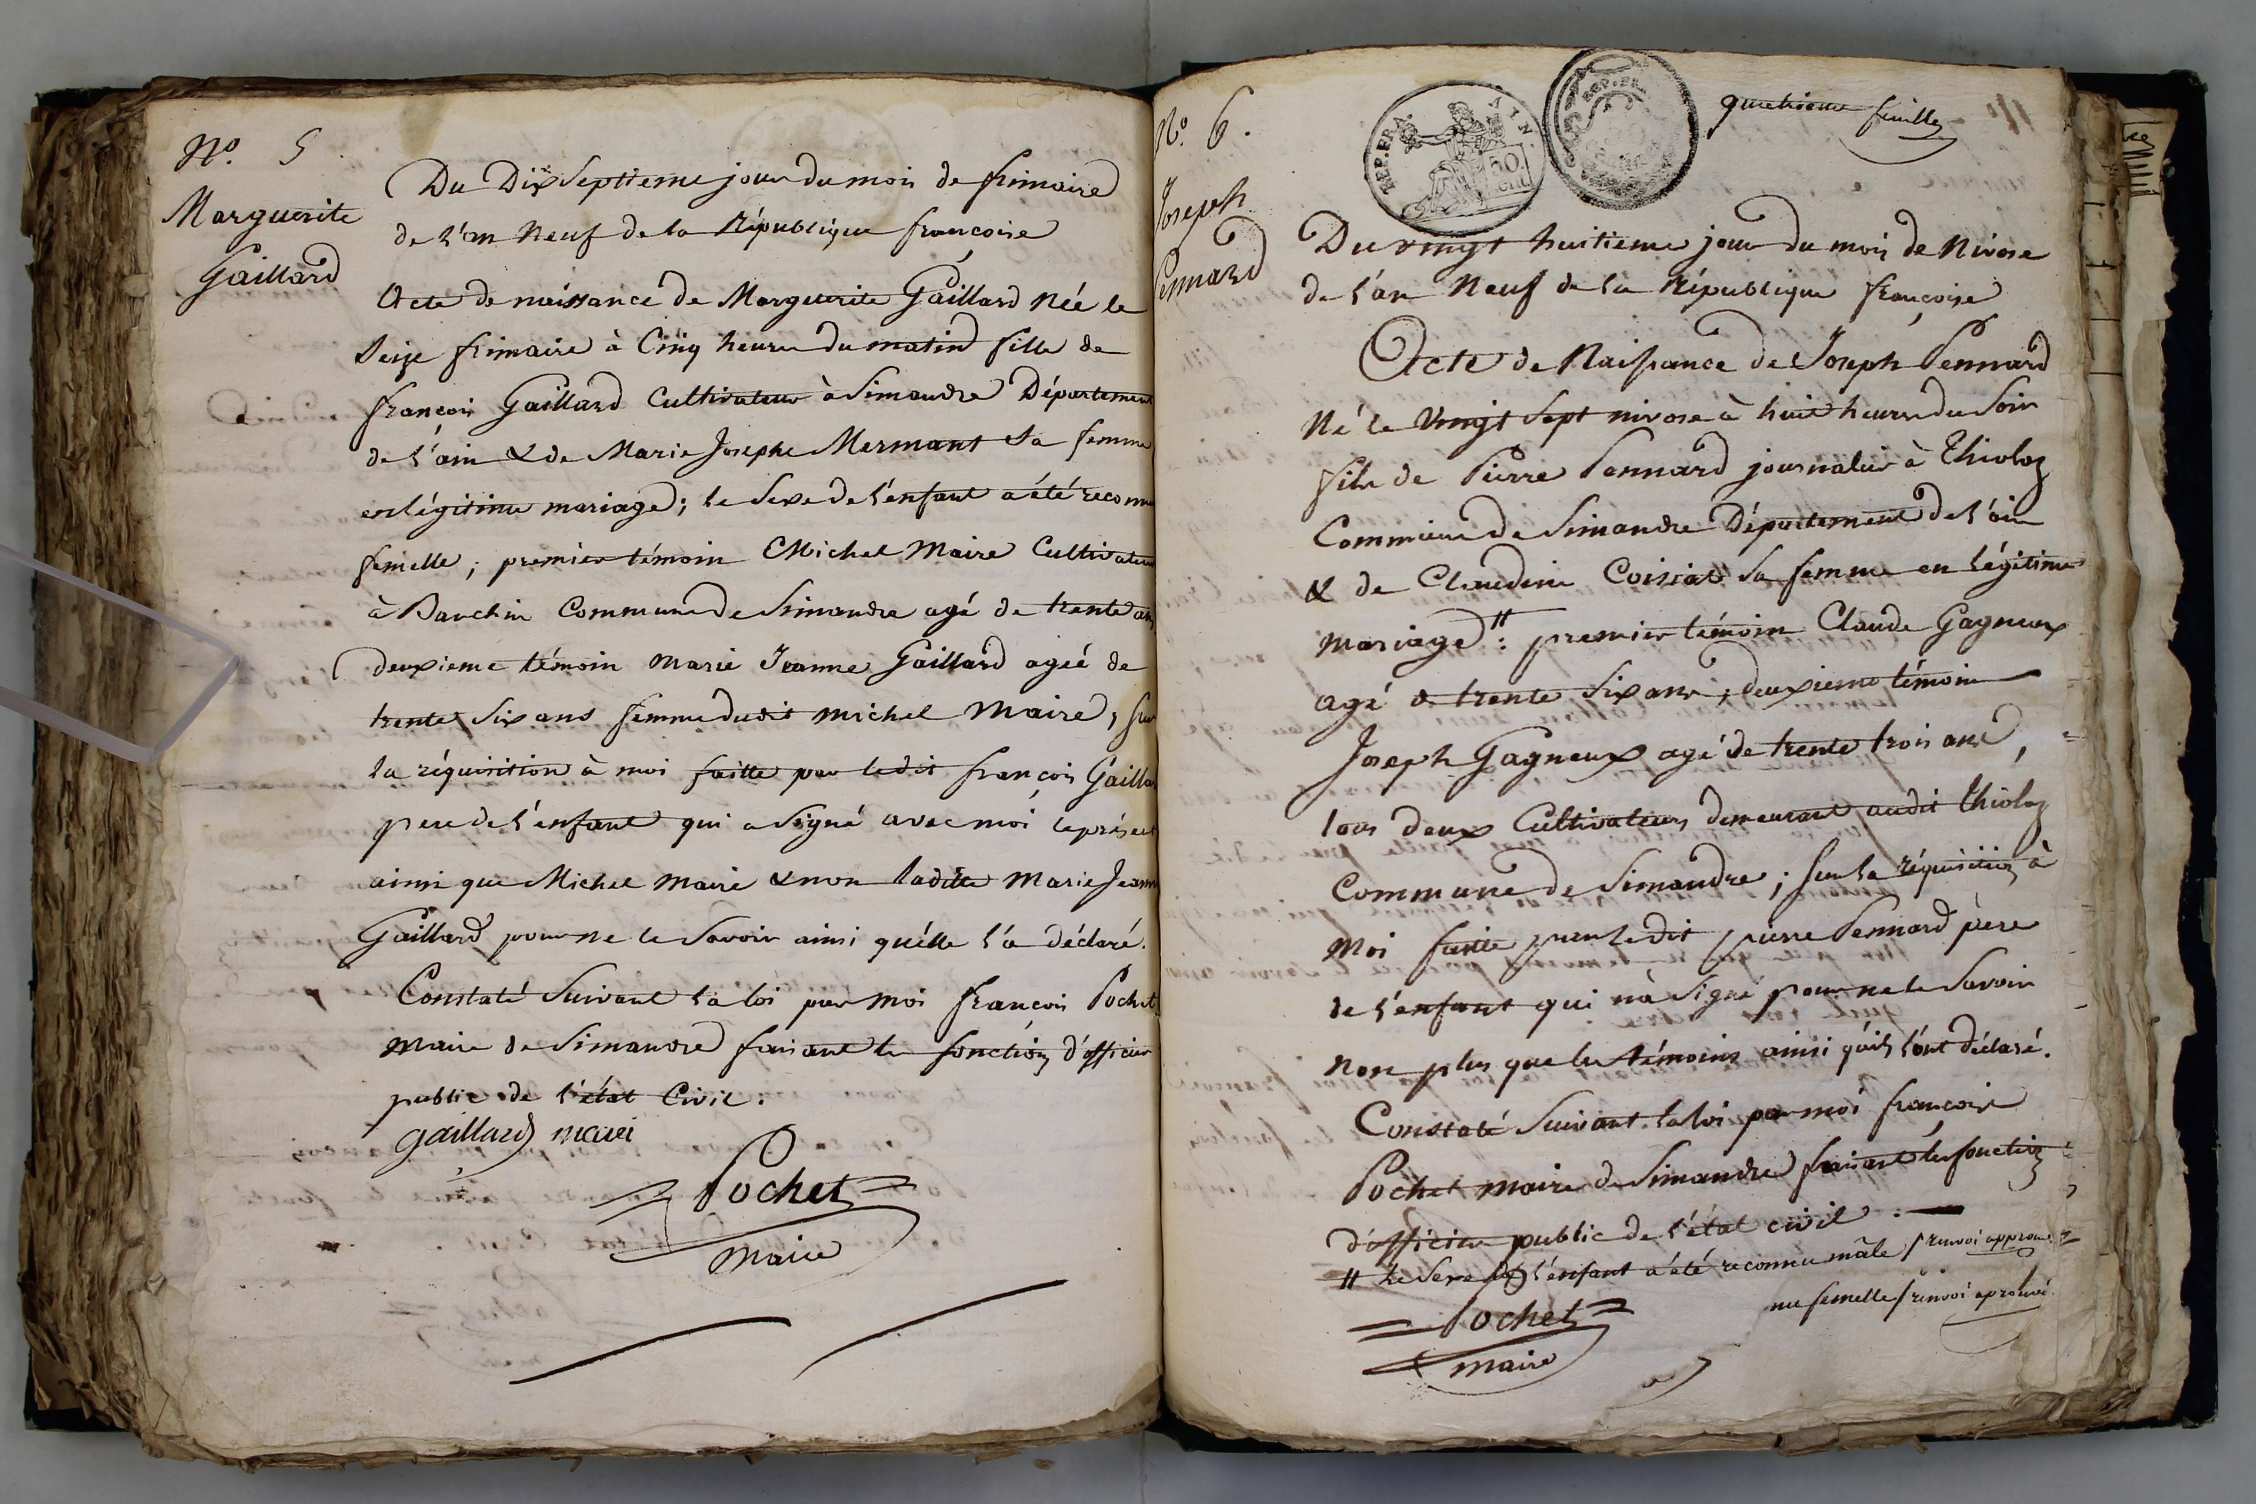 No. 5
Marguerite
Gaillard
Du Dix Septieme jour du mois de frimaire
de l'an Neuf de la République françoise
Acte de naissance de Marguerite Gaillard Née le
Seize frimaire à Cinq heures du matin fille de
françois Gaillard Cultivateur à Simandre Département
de l'ain & de Marie Josephe Mermant Sa femme
en légitime mariage; le Sexe de l'enfant a été reconnu
femelle; premier témoin Michel Maire Cultivateur
à Banchin Commune de Simandre agé de trente ans
deuxieme témoin Marie Jeanne Gaillard ageé de
trente Six ans femme dudit Michel Maire, sur
la réquisition à moi faitte par ledit françois Gaillard
pere de l'enfant qui a Signé avec moi le présent
ainsi que Michel Maire & non laditte Marie Jeanne
Gaillard pour ne le Savoir ainsi qu'elle l'a déclaré.
Constaté Suivant la loi par Moi françois Pochet
Maire de Simandre faisant les fonctions d'officier
public de l'état Civil.
gaillard
Pochet
maire
No. 6.
Joseph
Pennard
REP. FRA. AIN
50 cent
REP. FR.
quatrieme feuille
Du vingt huitieme jour du mois de Nivose
de l'an Neuf de la République françoise
Acte de Naissance de Joseph Pennard
Né le Vingt Sept nivose à huit heures du Soir
fils de Pierre Pennard journalier à Thioloz
Commune de Simandre Département de l'ain
& de Claudine Coissiat Sa femme en légitime
mariage #: premier témoin Claude Gagneux
agé de trente Six ans; deuxieme témoin
Joseph Gagneux agé de trente trois ans,
tous deux Cultivateurs demeurant audit Thioloz
Commune de Simandre; Sur la réquisition à
Moi faitte par ledit pierre Pennard père
de l'enfant qui n'a Signé pour ne le Savoir
Non plus que les témoins ainsi qu'ils l'ont déclaré.
Constaté Suivant la loi par moi françois
Pochet maire de Simandre faisant les fonctions
d'officier public de l'état civil.
# Le Sexe de l'enfant a été reconnu mâle / renvoi approuvé
nu femelle / renvoi aprouvé.
Pochet
maire